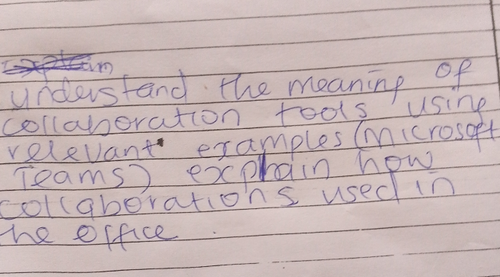 understand the meaning of
collaboration tools using
relevant examples (Microsoft
Teams) explain how
collaborations used in
the office